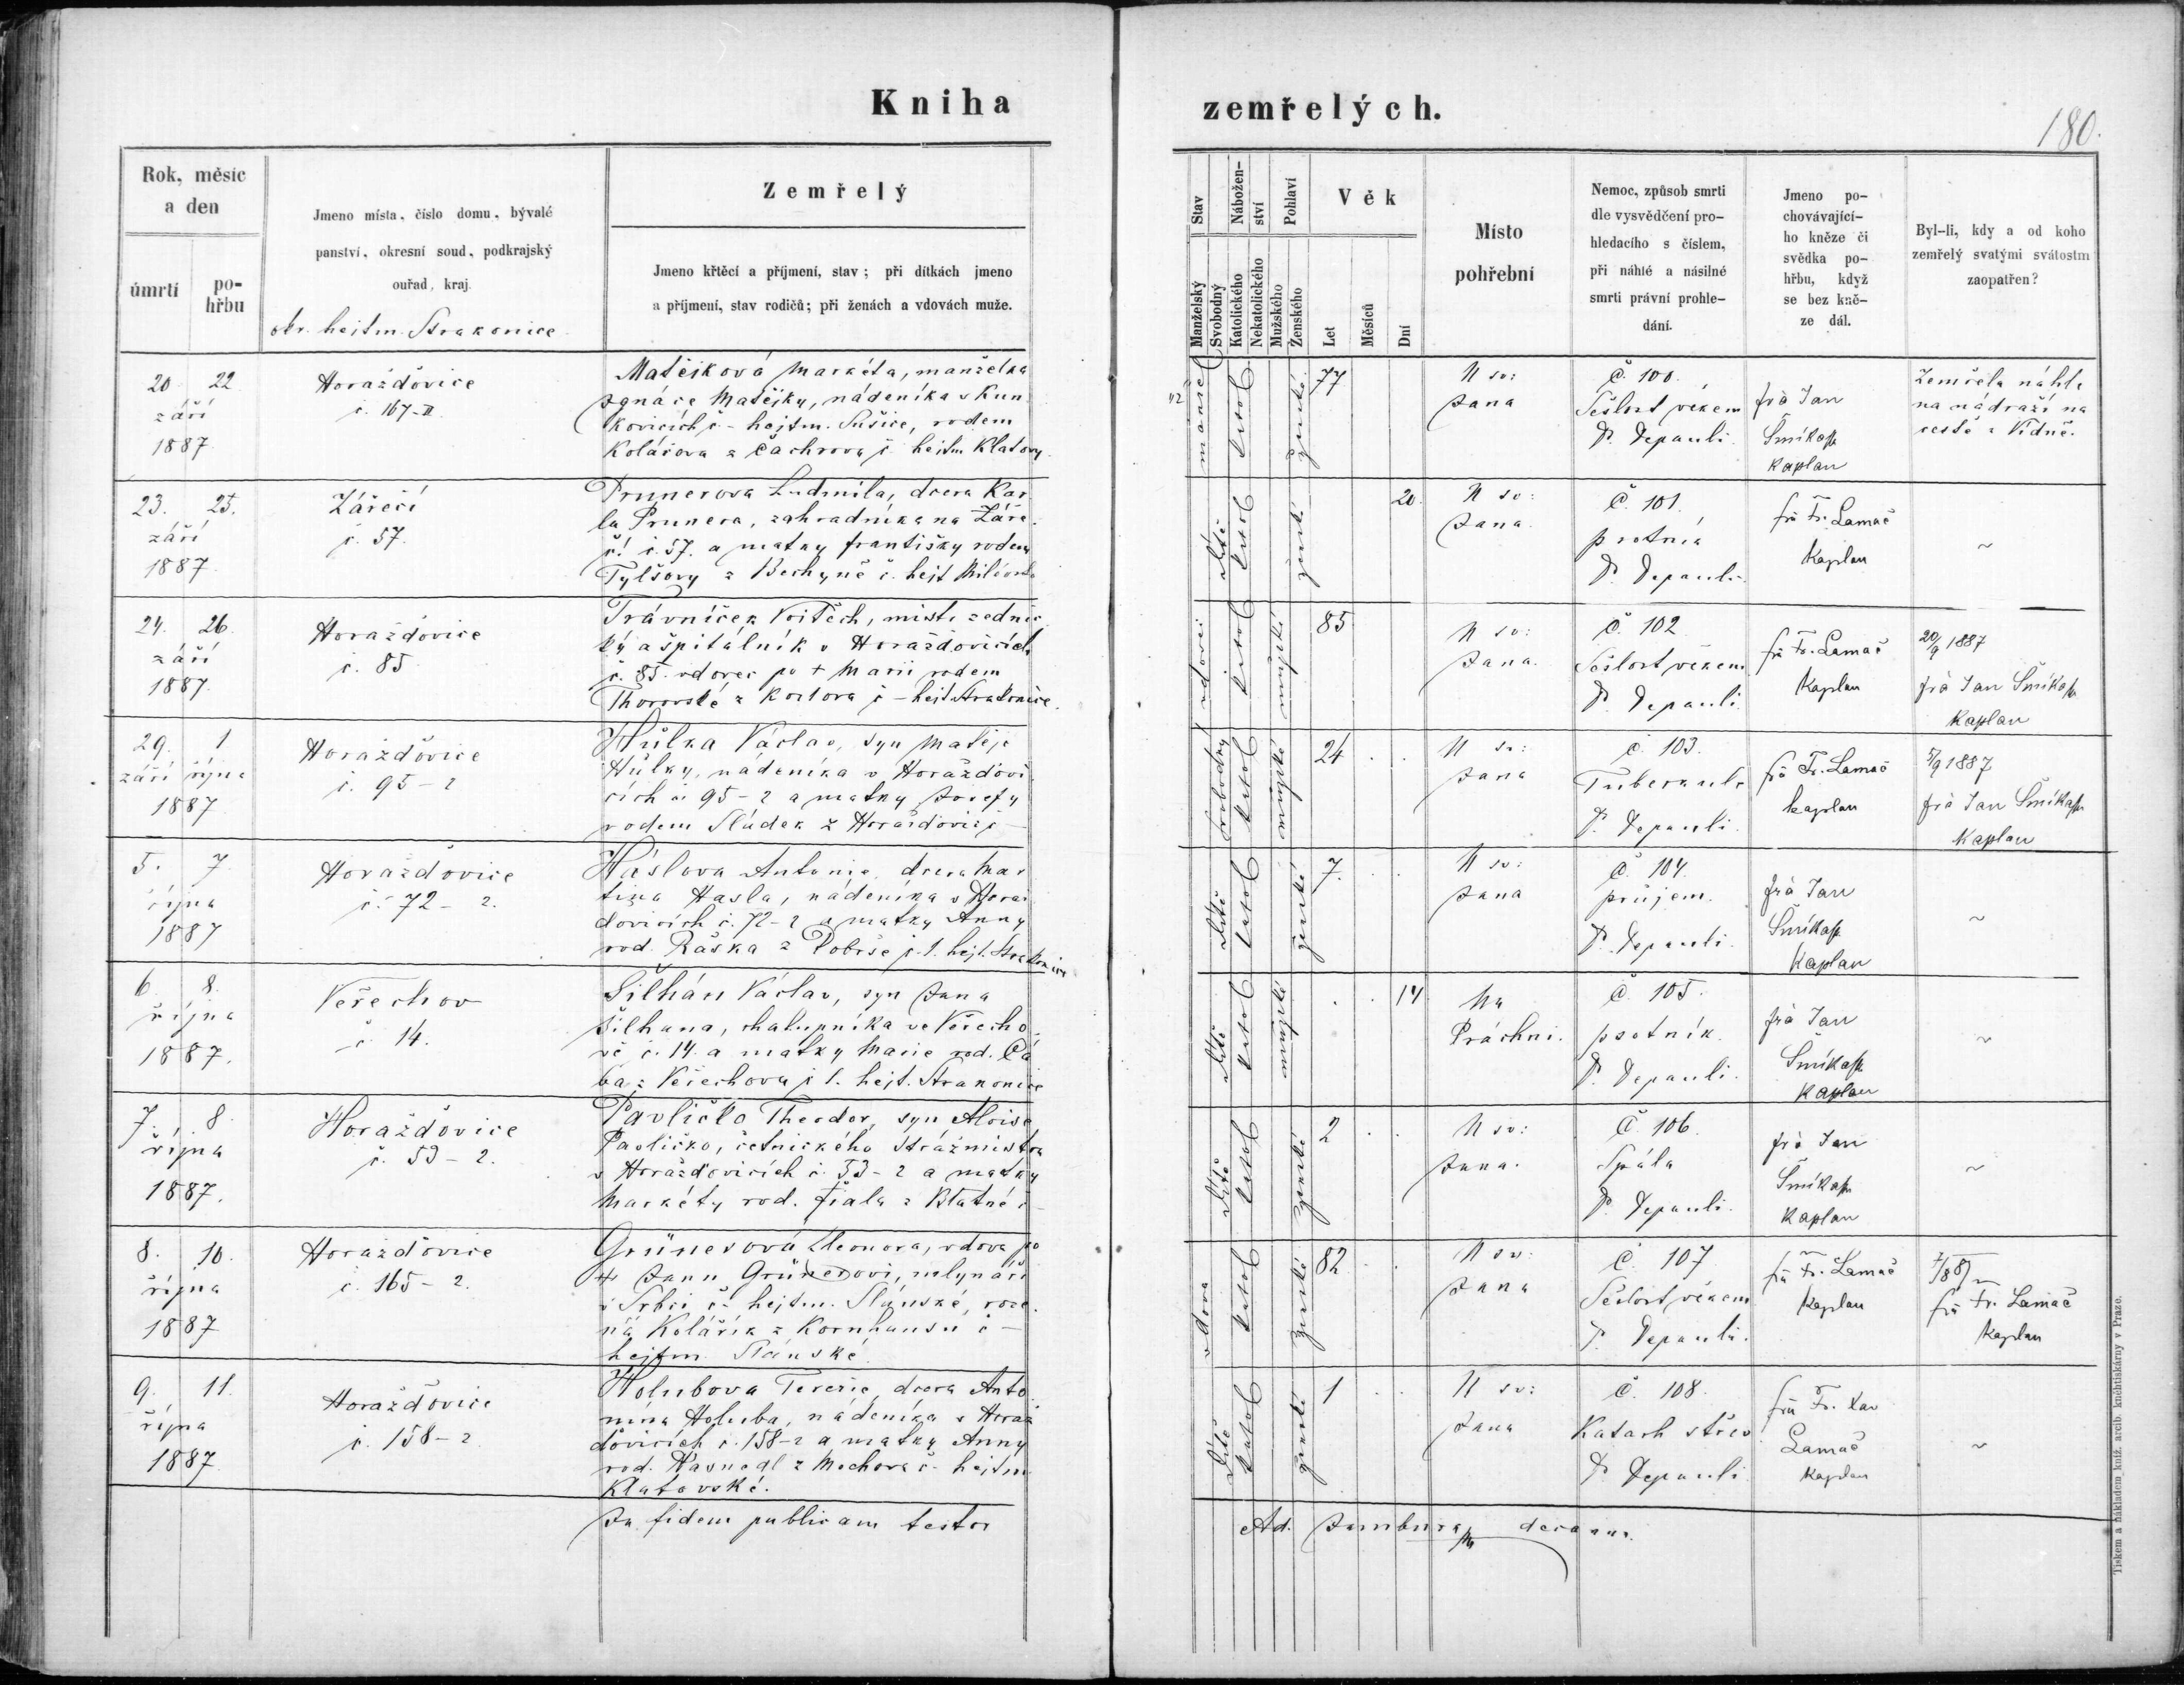 Kniha
zemřelých.
180.
Rok, měsíc
a den
úmrtí
po-
hřbu
Jmeno místa, číslo domu, bývalé
panství, okresní soud, podkrajský
ouřad, kraj.
okr. hejtm. Strakonice
Zemřelý
Jmeno křtěcí a příjmení, stav; při dítkách jmeno
a příjmení, stav rodičů; při ženách a vdovách muže.
Stav
Nábožen-
ství
Pohlaví
Věk
Manželský
Svobodný
Katolického
Nekatolického
Mužského
Ženského
Let
Měsíců
Dní
Místo
pohřební
Nemoc, způsob smrti
dle vysvědčení pro-
hledacího s číslem,
při náhlé a násilné
smrti právní prohle-
dání.
Jmeno po-
chovávající-
ho kněze či
svědka po-
hřbu, když
se bez kně-
ze dál.
Byl-li, kdy a od koho
zemřelý svatými svátostmi
zaopatřen?
20 22
září
1887
Horažďovice
č. 167-II
Matějková Markéta, manželka
Ignáce Matějky, nádeníka v Kun
kovicích č - hejtm. Sušice, rodem
Kolářova z Čachrova č hejtm Klatovy
manžel
katol
ženské
77
U sv:
Jana
Č. 100.
Sešlost věkem
P. Depauli
frà Jan
Šmíkal
kaplan
Zemřela náhle
na nádraží na
cestě z Vídně.
23. 25.
září
1887
Zářečí
č. 57.
Prunerova Ludmila, dcera Kar
la Prunera, zahradníka na Záře
čí č. 57. a matky Františky rodem
Tylšovy z Bechyně č. hejt Milevsko
dítě
katol
ženské
20
U sv:
Jana.
Č. 101.
psotnía
P. Depauli
frà Fr. Lamač
kaplan
~
24. 26.
září
1887.
Horažďovice
č. 85
Trávníček Vojtěch, mistr zednic
ký a špitálník v Horažďovicích
č. 85. vdovec po + Marii rodem
z č - hejt. Strakonice.
vdovec
katol
mužské
85
U sv:
Jana.
Č. 102
Sešlost věkem
P. Depauli.
frà Fr. Lamač
kaplan
20/9 1887
frà Jan Šmíkal
kaplan
29. 1
září října
1887
Horažďovice
č. 95 - 2
Hůlka Václav, syn Matěje
Hůlky, nádeníka v Horažďovi
cích č. 95 - 2 a matky Josefy
rodem Sládek z Horažďovic č -
svobodný
katol
mužské
24
U sv:
Jana
č. 103.
Tuberkule
P. Depauli.
frà Fr. Lamač
kaplan
5/9 1887
frà Jan Šmíkal
kaplan
5. 7.
října
1887
Horažďovice
č. 72 - 2.
Háslova Antonie, dcera Mar
tina Hasla, nádeníka v Horaž
dovicích č. 72 - 2 a matky Anny
rod. Raška z Dobrše č. 1. hejt. Strakonice
dítě
katol
ženské
7.
U sv:
Jana
Č. 104.
průjem.
P. Depauli.
frà Jan
Šmíkal
kaplan
~
6. 8.
října
1887.
Veřechov
č. 14.
Šilhán Václav, syn Jana
Šilhana, chalupníka ve Veřecho
vě č. 14. a matky Marie rod. Čá
ba z Veřechova č 1. hejt. Strakonice
dítě
katol
mužské
14
Na
Práchni.
Č. 105.
psotník.
P. Depauli.
frà Jan
Šmíkal
kaplan
~
7. 8.
října
1887.
Horažďovice
č. 53 - 2.
Pavličko Theodor, syn Aloise
Pavličko, četnického strážmistra
v Horažďovicích č. 53 - 2 a matky
Markéty rod. Fiala z Blatné č -
dítě
katol
ženské
2
U sv:
Jana.
Č. 106.
Spála
P. Depauli.
frà Jan
Šmíkal
kaplan
~
8. 10.
října
1887
Horažďovice
č. 165 - 2.
Grünerová Eleonora, vdova po
+ Janu Grünerovi, mlynáři
v Srbči č - hejtm. Slánské, roze.
ná Kolářík z Kornhausu č -
hejtm. Slánské.
vdova
katol
ženské
82
U sv:
Jana
Č. 107
Sešlost věkem
P. Depauli.
frà Fr. Lamač
kaplan
frà Fr. Lamač
kaplan
9. 11.
října
1887
Horažďovice
č. 158 - 2
Holubova Terezie, dcera Anto
nína Holuba, nádeníka v Horaž
ďovicích č. 158-2 a matky Anny
rod. z č - hejtm
Klatovské.
dítě
katol
ženské
1
U sv:
Jana
Č. 108.
Katarh střev
P. Depauli
frà Fr. Xav
Lamač
kaplan
~
In fidem publicam testor
Ad. Jambura decanus.
Tiskem a nákladem kníž. arcib. knihtiskárny v Praze.